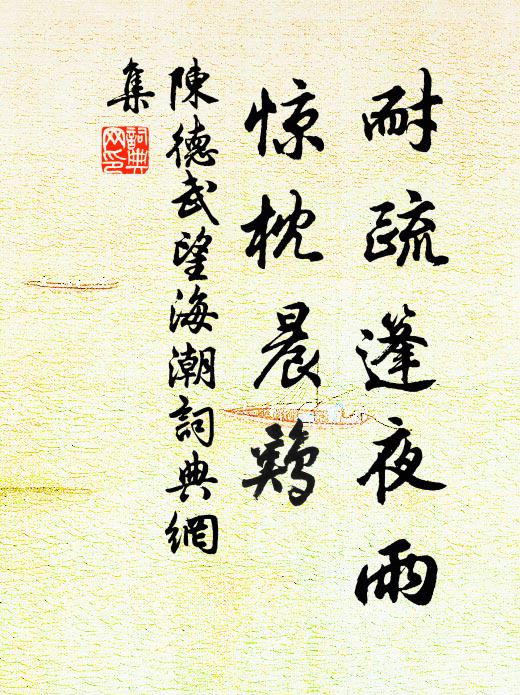 耐疏蓬夜雨
惊枕晨鷄
陳德武望海潮詞典網
集
詞典网印